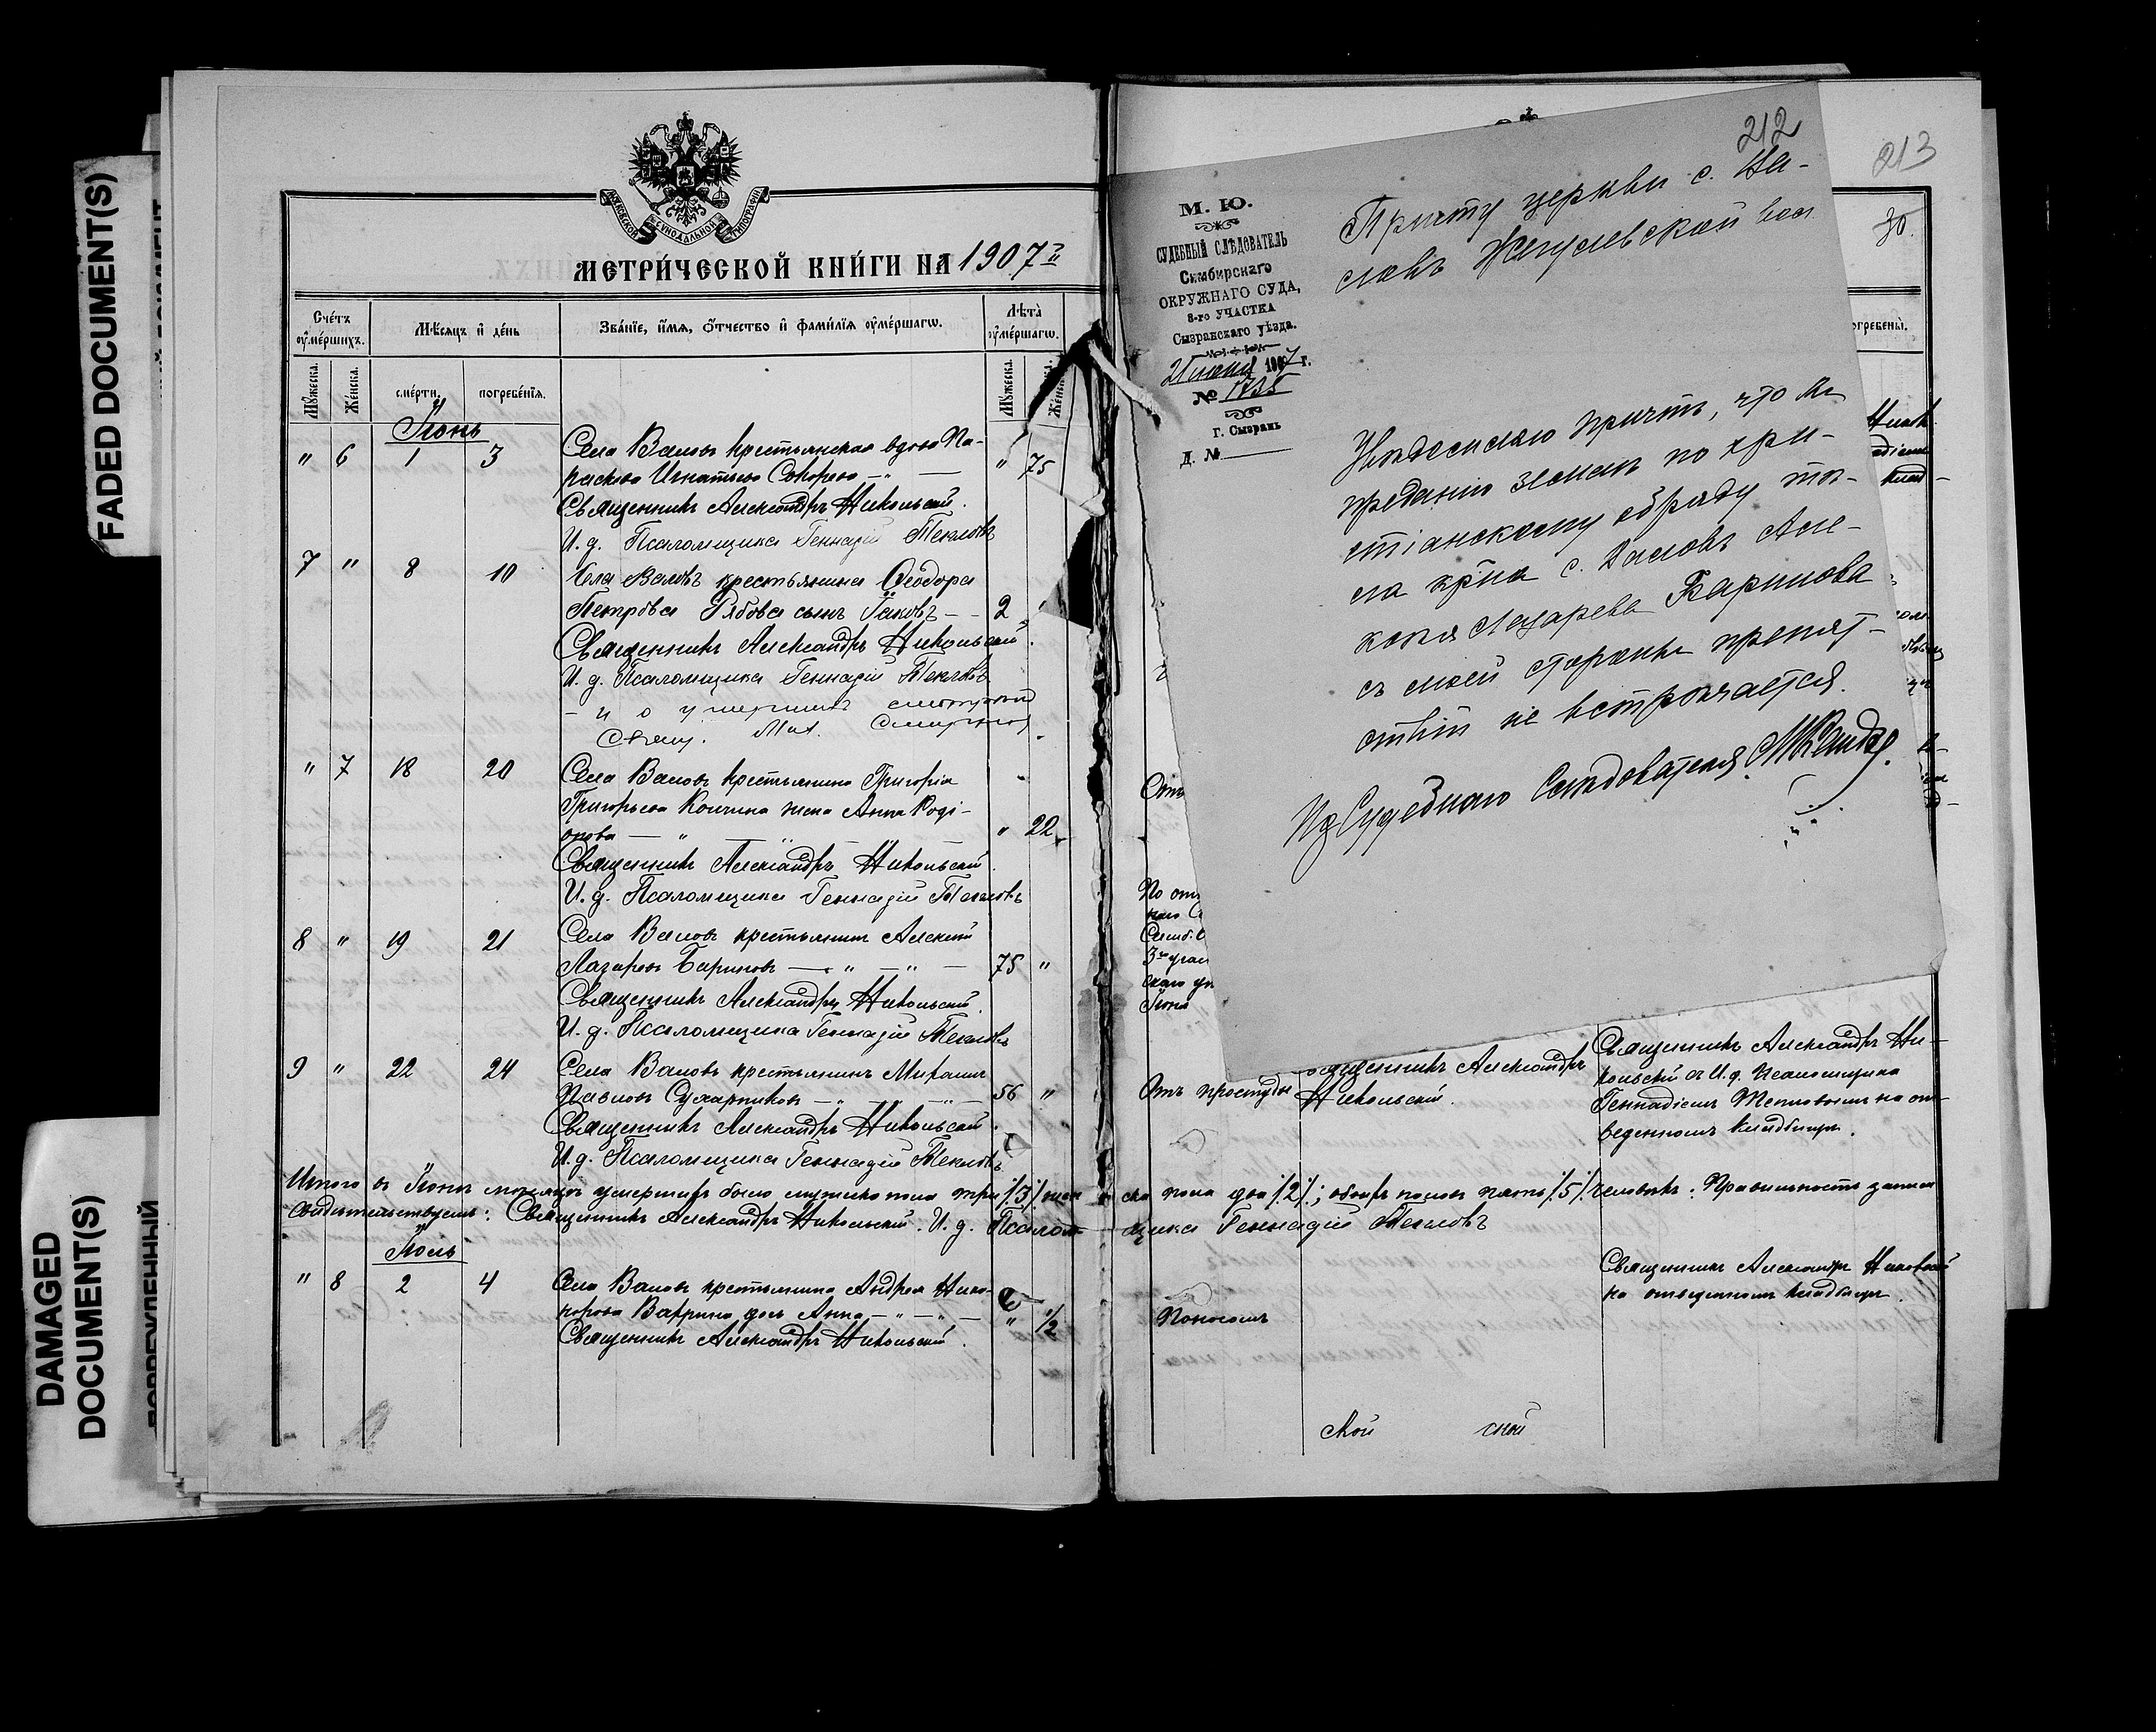 FADED DOCUMENT(S)
DAMAGED
DOCUMENT(S)
МОСКОВСКОЙ СѴНОДАЛЬНОЙ ТИПОГРАФІИ
МЕТРИ́ЧЕСКОЙ КНИ́ГИ НА 1907 г
Сче́тъ
ᲂу҆ме́ршихъ.
Мѣ́сяцъ и҆ де́нь
Зва́нїе, и҆́мя, ѻ҆́тчество и҆ фами́лїя ᲂу҆ме́ршагѡ.
Лѣ́та̀
ᲂу҆ме́ршагѡ.
Мꙋ́жеска.
Же́нска.
сме́рти.
погребе́нїя.
Мꙋ́жеска.
Же́нска.
Іюнь
" 6 1 3 Села Валовъ крестьянская вдова Па-
раскева Игнатьева " 75
Священникъ Александръ Никольскій.
И. д. Псаломщика Геннадій Теклевъ
7 " 8 10 Села Валовъ крестьянина Ѳеодора
Петрова Рябова сынъ Іаковъ — - 2
Священникъ Александръ Никольскій.
И. д. Псаломщика Геннадій Теклевъ
- и о умершихъ смотрѣлъ
Свящ. Мих. Смирновъ
" 7 18 20 Села Валовъ крестьянина Григорія
Григорьева Кончина жена Анна Роді-
онова — " — " " 22
Священникъ Александръ Никольскій.
И. д. Псаломщика Геннадій Теклевъ
8 " 19 21 Села Валовъ крестьянинъ Алексѣй
Лазаревъ Бариновъ — " — " — 75 "
Священникъ Александръ Никольскій.
И. д. Псаломщика Геннадій Теклевъ
9 " 22 24 Села Валовъ крестьянинъ Михаилъ
Павловъ Сухарниковъ — " — " — 56 "
Священникъ Александръ Никольскій.
И. д. Псаломщика Геннадій Теклевъ
Итого въ Іюнѣ мѣсяцѣ умершихъ было мужеска пола три /3/ жен
ска пола два /2/; обоихъ половъ пять /5/ человѣкъ. Правильность записи
свидѣтельствуемъ: Священникъ Александръ Никольскій. И. д. Псалом-
щика Геннадій Теклевъ
Іюль
" 8 2 4 Села Валовъ крестьянина Андрея Ника-
норова Ваврина дочь Анна — " — " — " 1/2
Священникъ Александръ Никольскій.
212
213
30.
М. Ю.
СУДЕБНЫЙ СЛѢДОВАТЕЛЬ
Симбирскаго
ОКРУЖНАГО СУДА,
3-го УЧАСТКА
Сызранскаго уѣзда.
21 июня 1907 г.
№ 1735
г. Сызрань
Д. №
Причту церкви с. Ва-
ловъ Жегулевской вол.
Увѣдомляю причтъ, что къ
преданію землѣ по хри-
стіанскому обряду тѣ-
ла кр-на с. Валовъ Але-
ксѣя Лазарева Баринова
съ моей стороны препят-
ствій не встрѣчается.
Судебнаго Слѣдователя
огребены̀.
По отн
каго С
Симб. О
3го учас
скаго уѣ
Іюня
Отъ простуды
Священникъ Александръ
Никольскій.
Священникъ Александръ Ни-
кольскій съ И. д. Псаломщика
Геннадіемъ Теклевымъ на от-
веденномъ кладбищѣ.
Поносомъ
Священникъ Александръ Никольскій
на отведенномъ кладбищѣ.
ской
ской